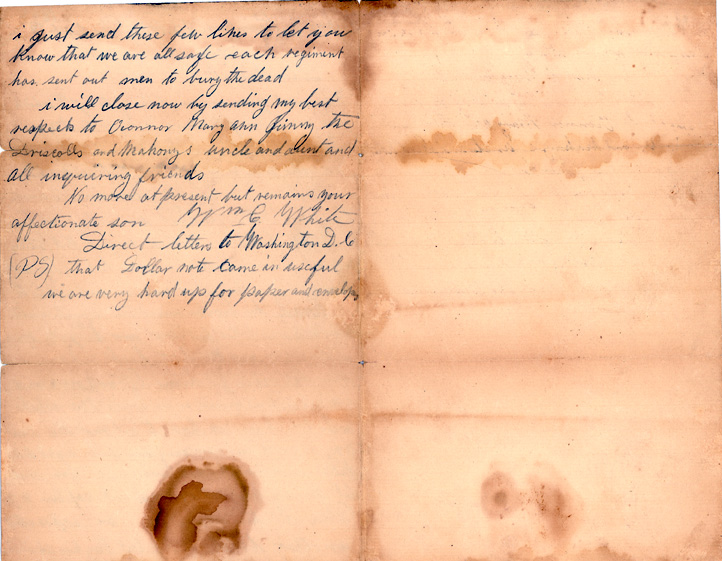 i just send these few lines to let you
know that we are all safe each regiment
has sent out men to bury the dead
i will close now by sending my best
respects to Oconnor Mary ann Jimmy the
Driscolls and Mahonys uncle and Aunt and
all inquiring friends
No more at present but remains your
affectionate son Wm C White
Direct letters to Washington D.C
(PS) that Dollar note came in useful
we are very hard up for paper and envelops